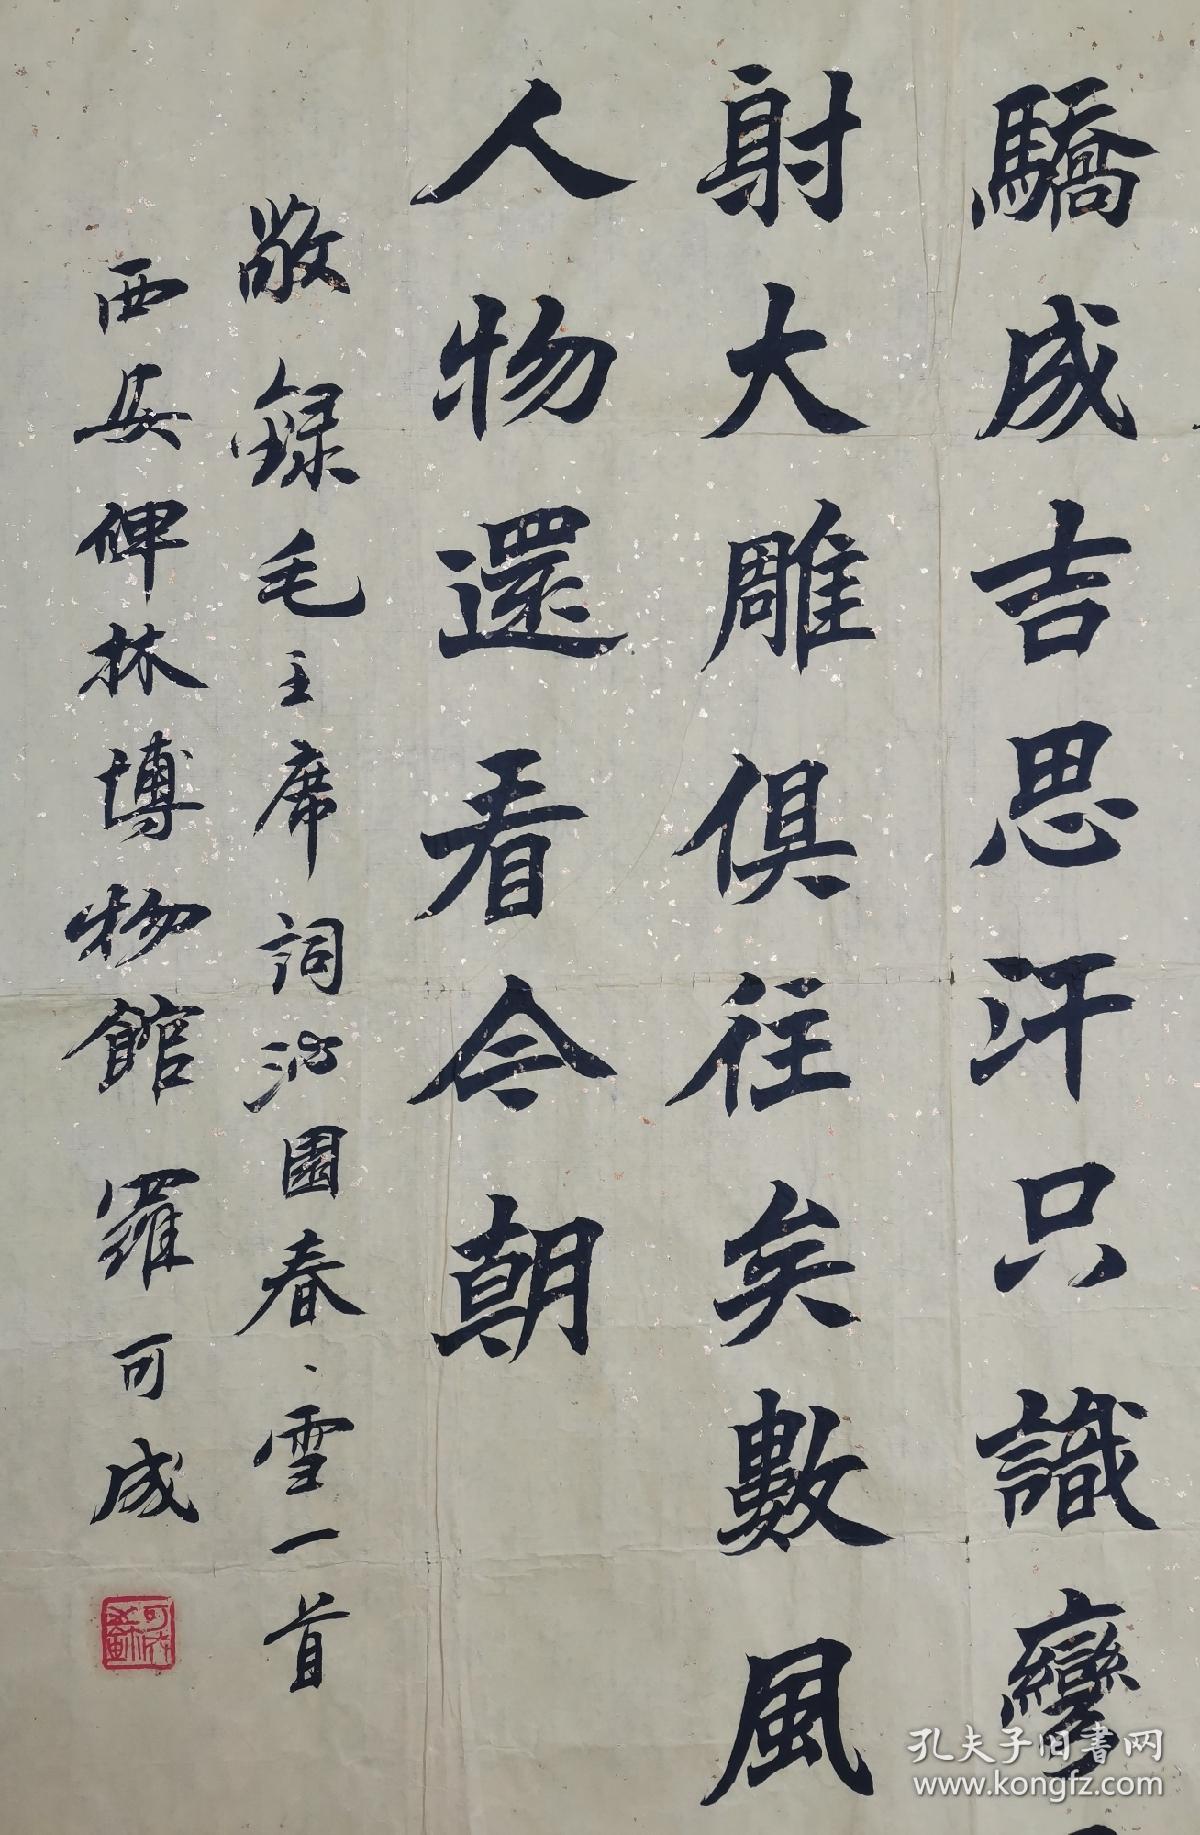 驕成吉思汗只識彎
射大雕俱往矣數風
人物還看今朝
敬録毛主席詞沁園春、雪一首
西安碑林博物館羅可成
孔夫子旧書网
www.kongfz.com